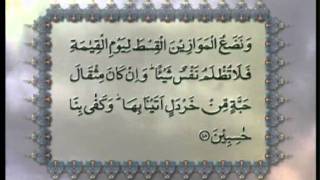 وَنَضَعُ الْمَوَازِيْنَ الْقِسْطَ لِيَوْمِ الْقِيٰمَةِ
فَلَا تُظْلَمُ نَفْسٌ شَيْئًا ؕ وَاِنْ كَانَ مِثْقَالَ
حَبَّةٍ مِّنْ خَرْدَلٍ اَتَيْنَا بِهَا ؕ وَكَفٰى بِنَا
حٰسِبِيْنَ ﴿۴۸﴾